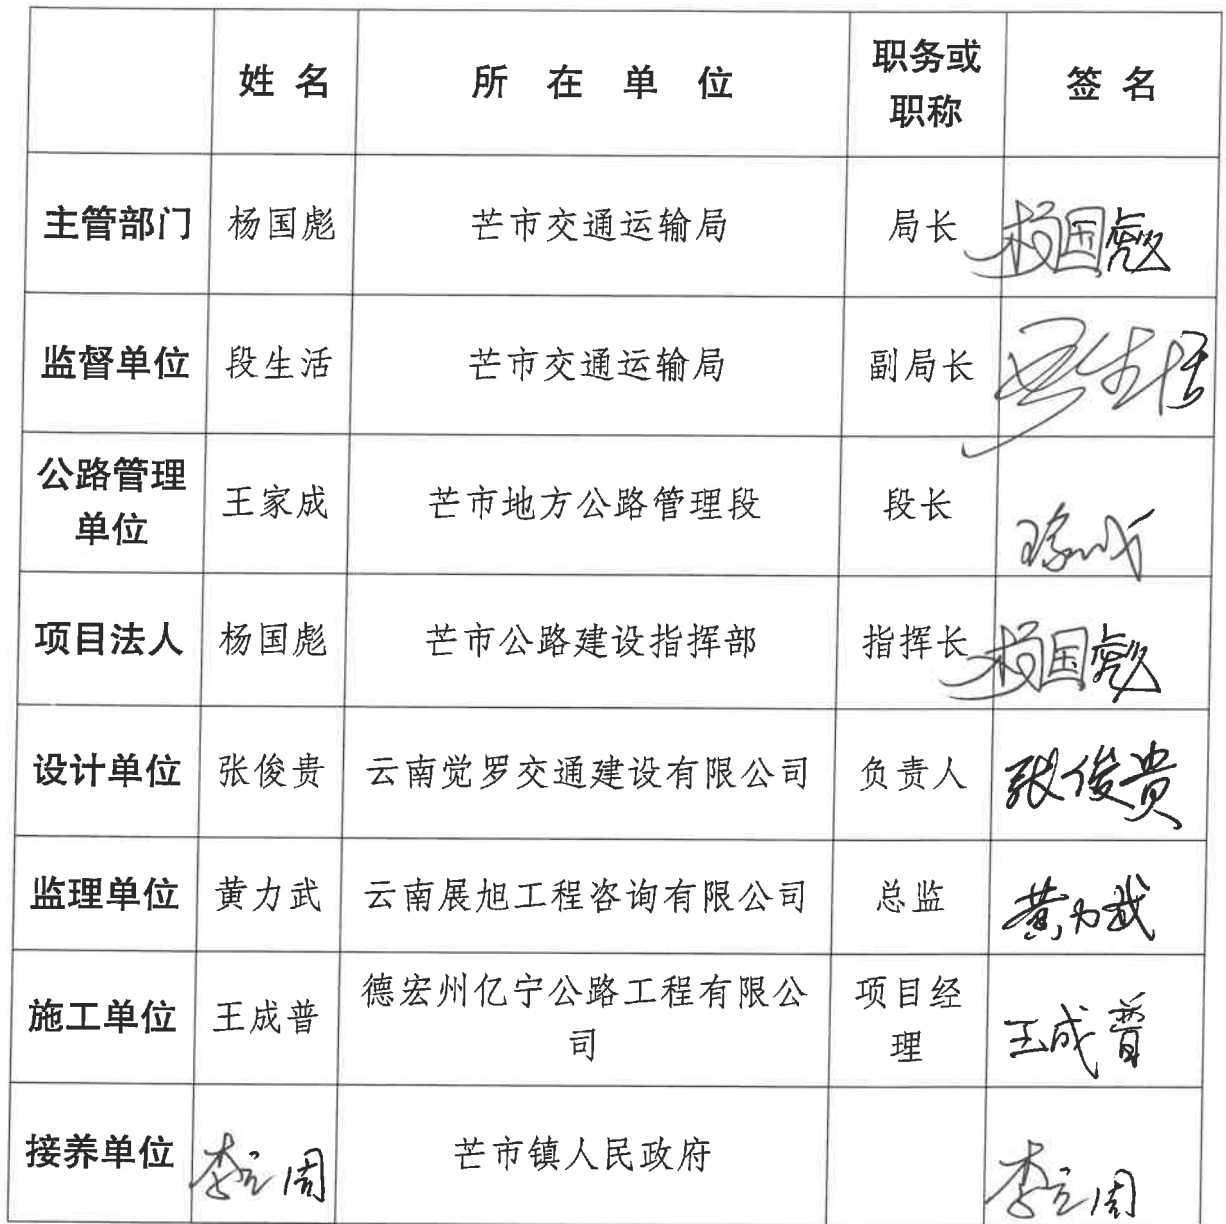 姓 名 所 在 单 位 职务或职称 签 名
主管部门 杨国彪 芒市交通运输局 局长 杨国彪
监督单位 段生活 芒市交通运输局 副局长 段生活
公路管理单位 王家成 芒市地方公路管理段 段长 王家成
项目法人 杨国彪 芒市公路建设指挥部 指挥长 杨国彪
设计单位 张俊贵 云南觉罗交通建设有限公司 负责人 张俊贵
监理单位 黄力武 云南展旭工程咨询有限公司 总监 黄力武
施工单位 王成普 德宏州亿宁公路工程有限公司 项目经理 王成普
接养单位 芒市镇人民政府